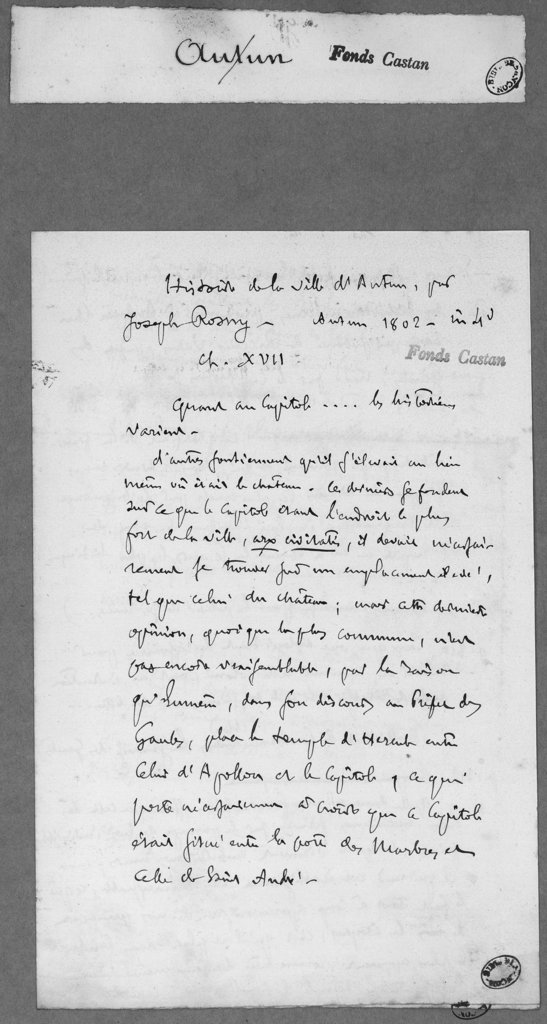 Autun
Fonds Castan
Histoire de la ville d'Autun, par
Joseph Rosny – Autun 1802 – in 4°
Ch. XVII
Fonds Castan
Quant au Capitole .... les historiens
varient –
d'autres soutiennent qu'il s'élevait au lieu
même où était le château. Ces derniers se fondent
sur ce que le Capitole étant l'endroit le plus
fort de la ville, arx civitatis, il devait nécessai-
rement se trouver sur un emplacement élevé,
tel que celui du château ; mais cette dernière
opinion, quoique la plus commune, n'est
pas encore vraisemblable, par la raison
qu'Eumène, dans son discours au Préfet des
Gaules, place le temple d'Hercule entre
celui d'Apollon et le Capitole, ce qui
porte nécessairement à croire que ce Capitole
était situé entre la porte des Marbres et
celle de Saint André –